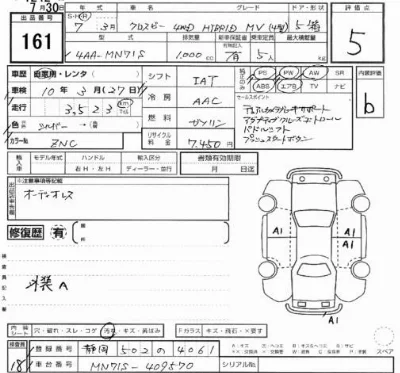 7月30日
出品番号
161
年式
グレード
ドア・形状
評価点
S・H・R
7 - 3月 クロスビー 4WD HYBRID MV (4型) 5箱
5
型式
排気量
乗車定員
最大積載量
4AA-MN71S
1,000 cc
有
5人
車歴 自家用・レンタ
車検 10年 3月 (27日)
走行 3,523 km
色 シルバー → (色)
カラーNo. ZNC
シフト IAT
冷房 AAC
燃料 ガソリン
リサイクル料金 7,450円
PS PW AW SR
ABS エアB TV ナビ
セールスポイント
デュアルカメラブレーキサポート
アダプティブクルーズコントロール
パドルシフト
プッシュスタートボタン
内装評価
b
輸入車
モデル年式 ハンドル 輸入区分 書類有効期限
右H・左H ディーラー・並行 年 月 日迄
※注意事項等記載
オーディオレス
修復歴 有
外装A
A1
A1
A1
A1
内装 シート
穴・破れ・スレ・コゲ 汚れ・キズ・黄ばみ
Fガラス キズ・飛石・×要す
スペア
登録番号 静岡 502 の 4061
車台番号 MN71S-409570
シリアルNo.